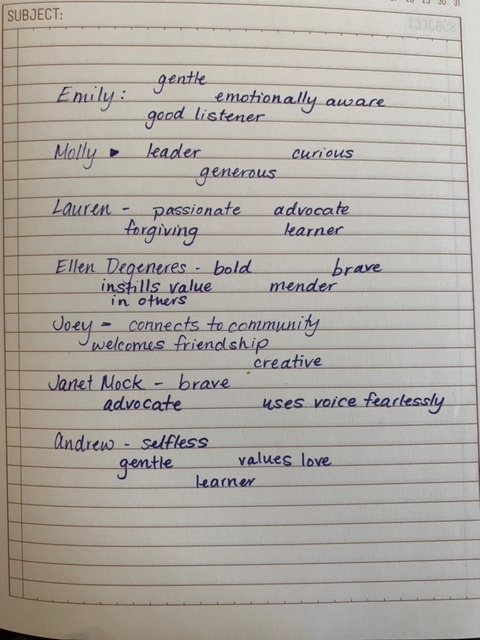 28 29 30 31
SUBJECT:
gentle
Emily: emotionally aware
good listener
Molly ▸ leader curious
generous
Lauren - passionate advocate
forgiving learner
Ellen Degeneres - bold brave
instills value mender
in others
Joey - connects to community
welcomes friendship
creative
Janet Mock - brave
advocate uses voice fearlessly
Andrew - selfless
gentle values love
learner